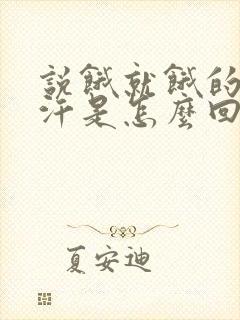 說餓就餓的
汗是怎麼回
夏安迪